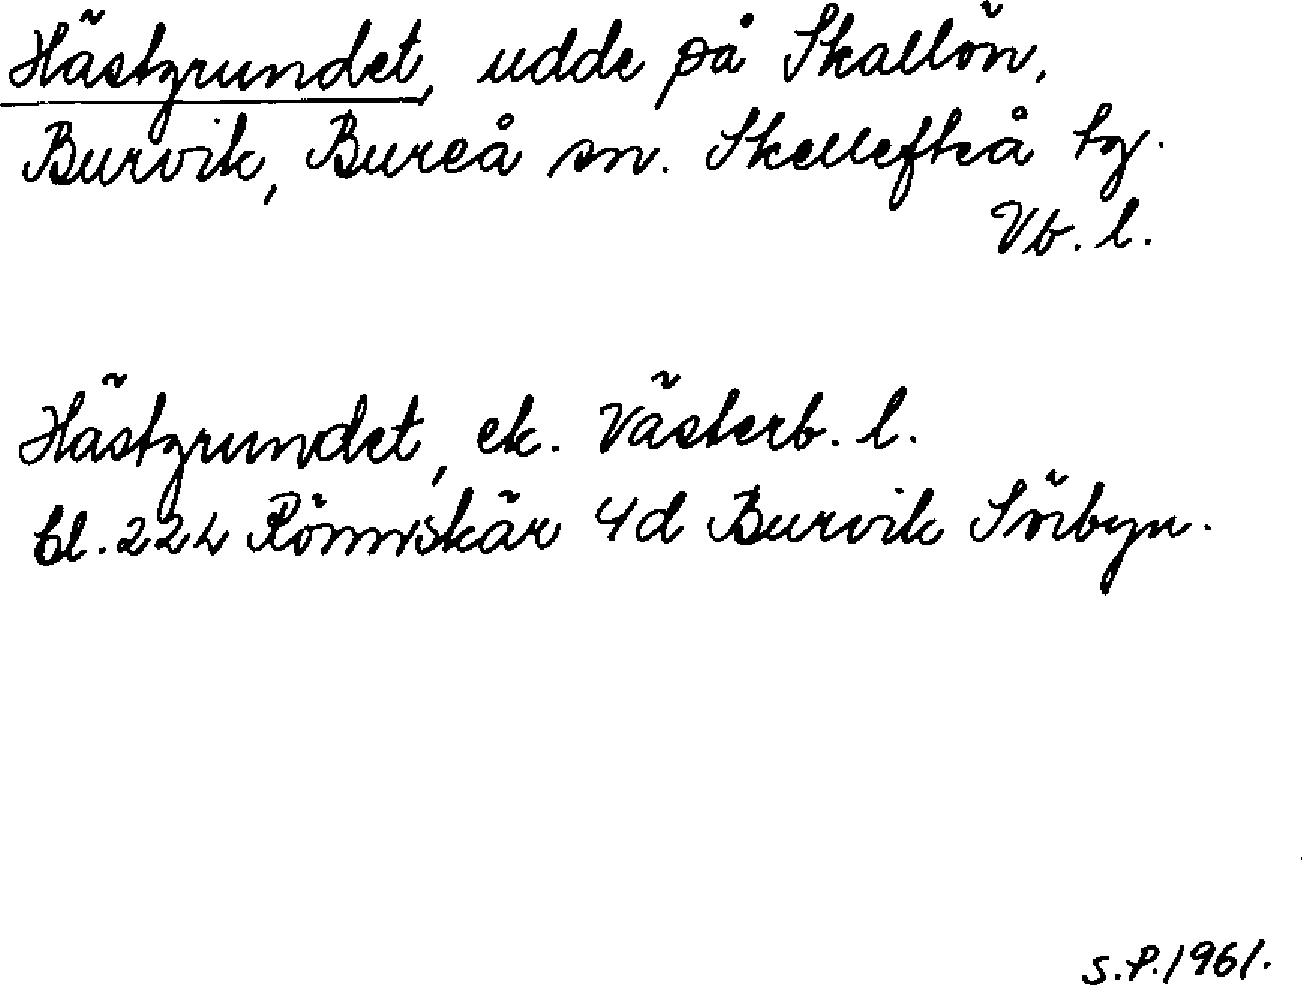 Hästgrundet, udde på Skallön,
Burvik, Bureå sn. Skellefteå tg.
Vb. l.
Hästgrundet, ek. Västerb. l.
bl. 22L Rönnskär 4d Burvik Sörbyn.
S.P. 1961.